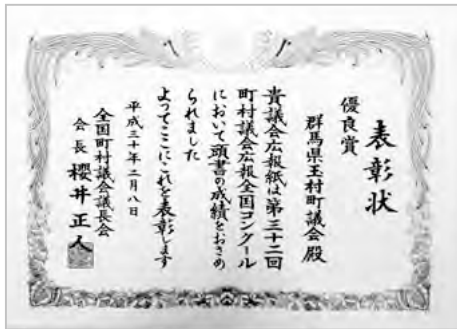 表彰状
優良賞
群馬県玉村町議会殿
貴議会広報紙は第三十二回
町村議会広報全国コンクール
において頭書の成績をおさめ
られました
よってここにこれを表彰します
平成三十年二月八日
全国町村議会議長会
会長 櫻井正人